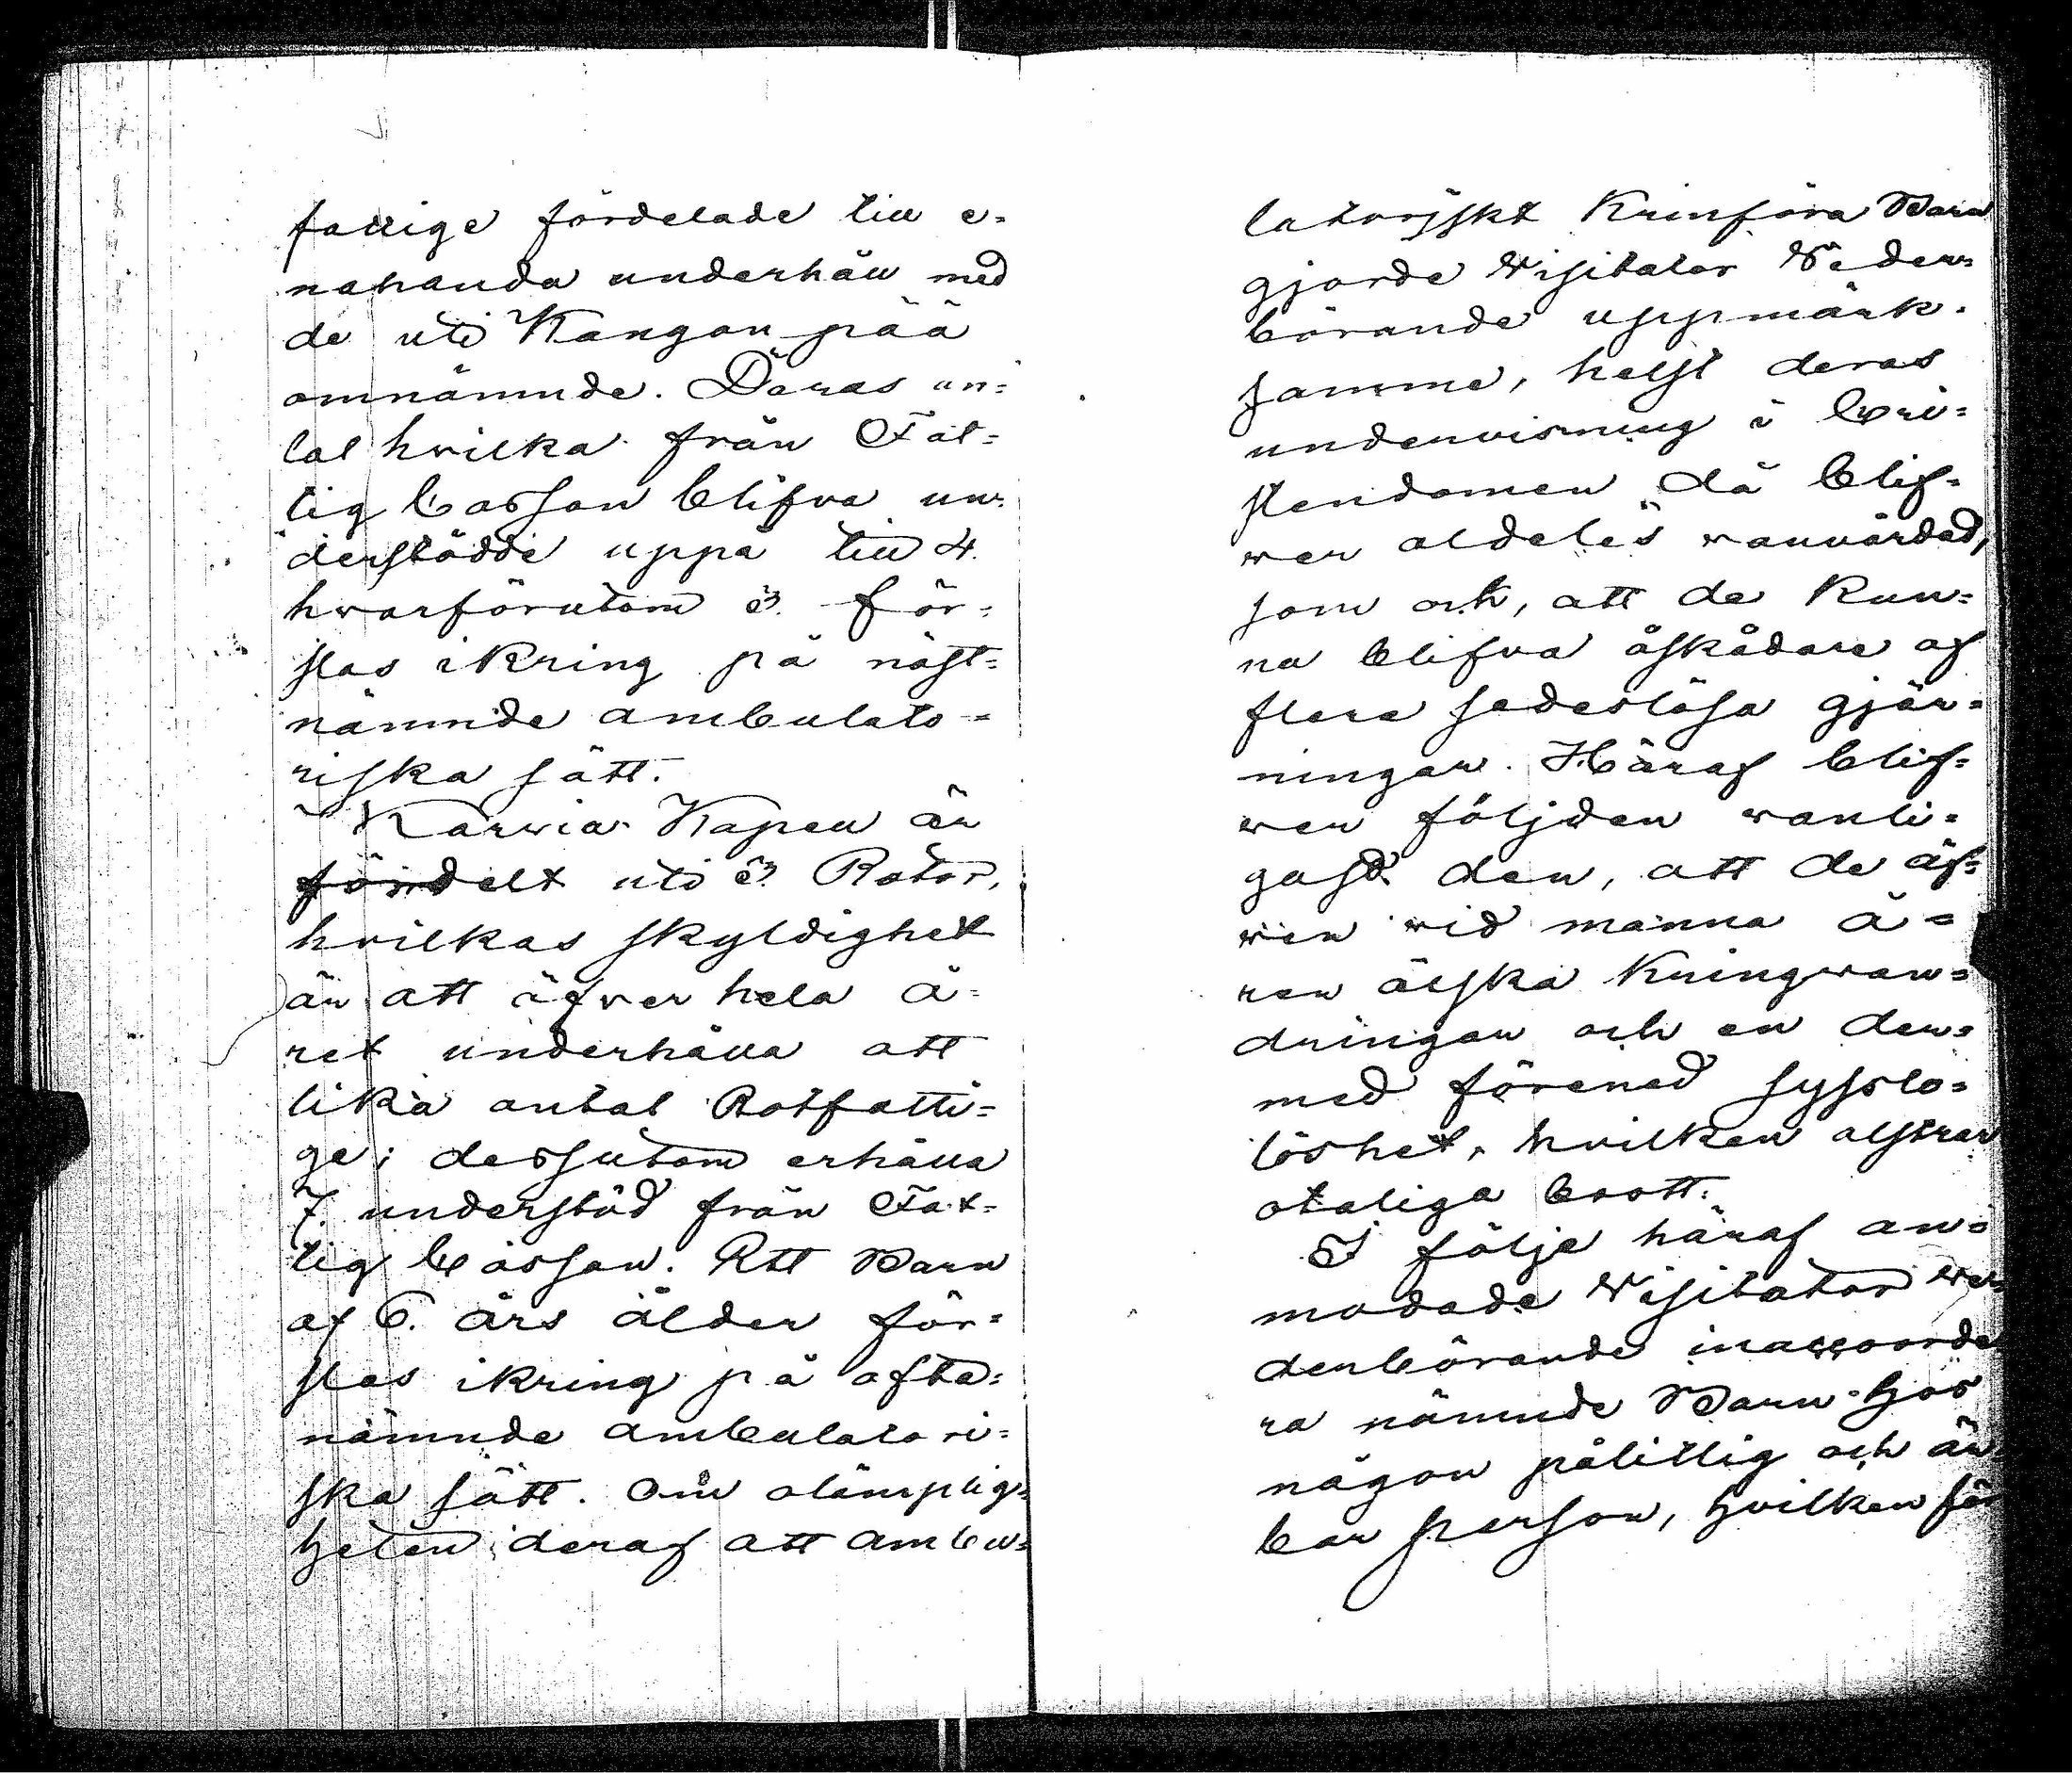 fattige fördelade till e=
nahanda underhåll med
de uti Kangonpää
omnämnde. Deras an=
tal hvilka från Fat=
tig Cassan blifva un=
derstödde uppå till 4.
hvarförutom 3. för=
slas ikring på näst=
nämnde ambulato=
riska sätt.
Karvia Kapell är
fördelt uti 3. Rotor,
hvilkas skyldighet
är att öfver hela å=
ret underhålla ett
lika antal Rotfatti=
ge; dessutom erhålla
7. understöd från Fat=
tig Cassan. Ett Barn
af 6. års ålder för=
slas ikring på ofta=
nämnde ambulatori=
ska sätt. Om olämplig=
heten deraf att ambu=
latoriskt kringföra Barn
gjorde Visitator Veder=
börande uppmärk=
samme, helst deras
undervisning i Cri=
stendomen då blif=
wer aldeles wanvårdad,
som och, att de kun=
na blifva åskådare af
flere sedeslösa gjär=
ningar. Häraf blif=
wer följden wanli=
gast den, att de äf=
wen wid manna å=
ren älska kringwan=
dringar och en der=
med förenad sysslo=
löshet, hvilken alstrar
otaliga brott.
I följe häraf an=
modade Visitator we=
derbörande inaccorde
ra nämnde Barn hos
någon pålitlig och är
bar person, hvilken för